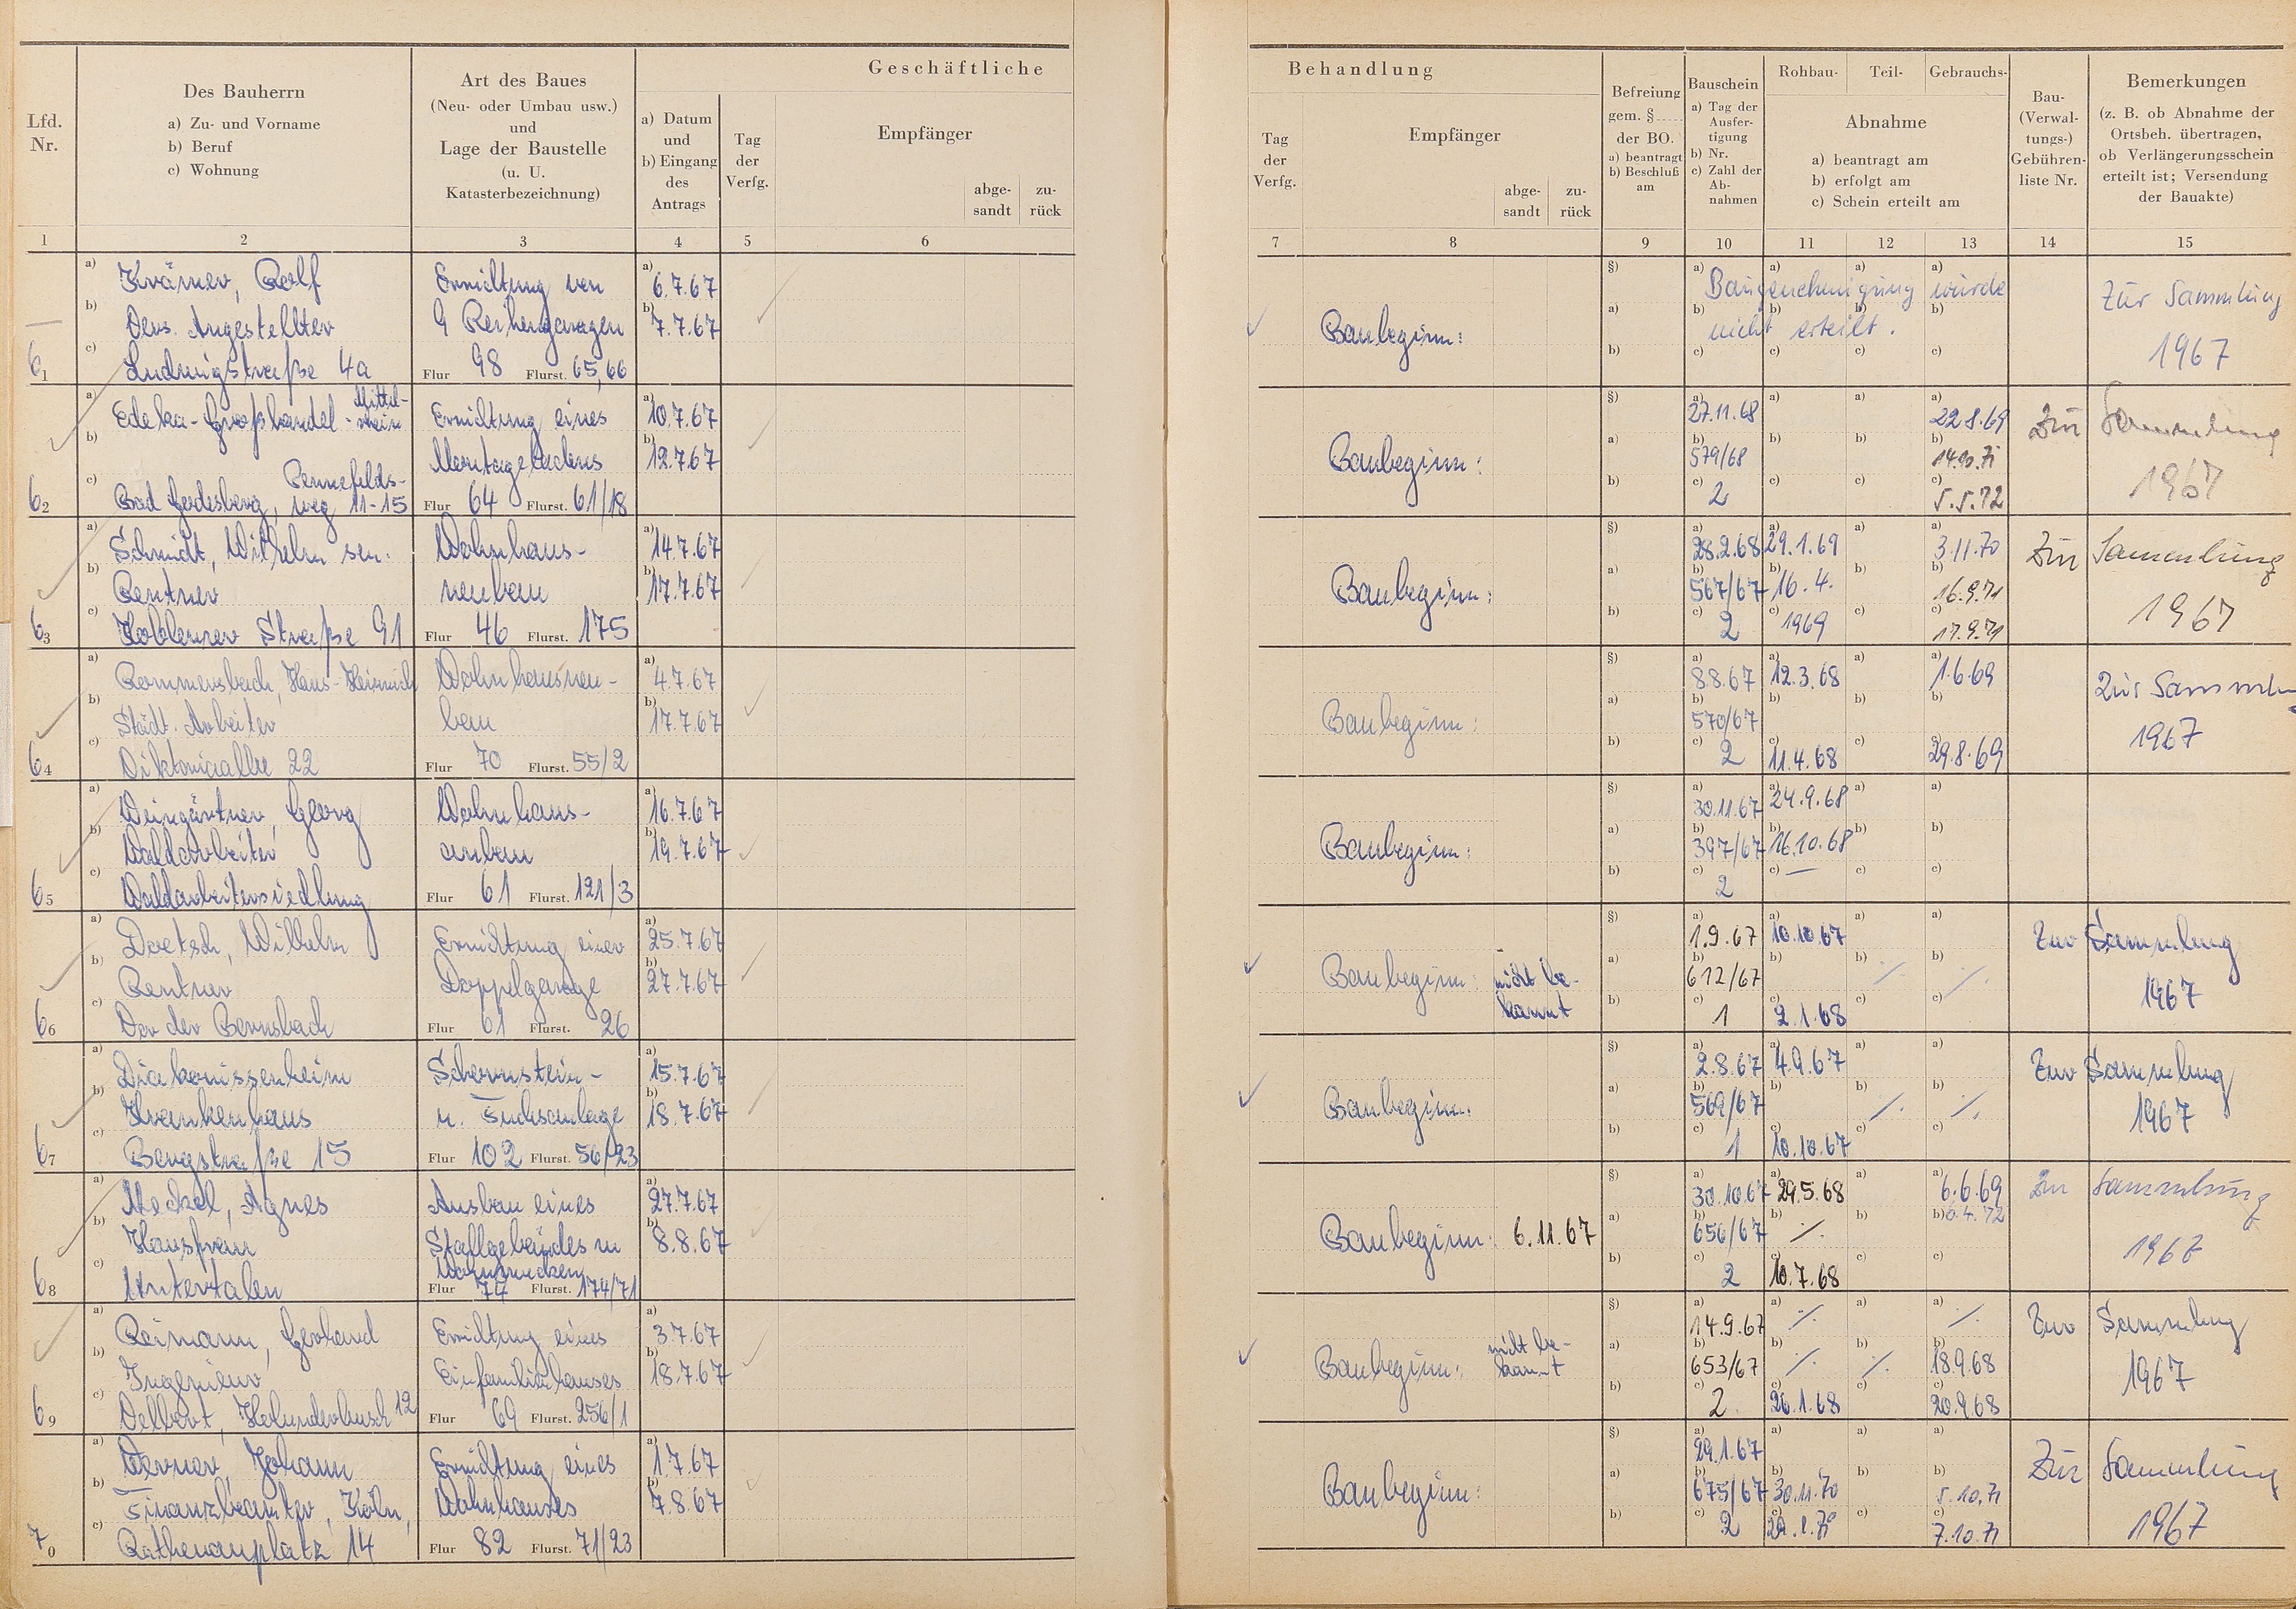 Geschäftliche
Lfd. Nr.
Des Bauherrn
a) Zu- und Vorname
b) Beruf
c) Wohnung
Art des Baues
(Neu- oder Umbau usw.)
und
Lage der Baustelle
(u. U.
Katasterbezeichnung)
a) Datum
und
b) Eingang
des
Antrags
Tag
der
Verfg.
Empfänger
abge-
sandt
zu-
rück
1 2 3 4 5 6
61
a) Krämer, Rolf
b) Vers. Angestellter
c) Ludwigstraße 4a
Errichtung von
9 Reihengaragen
Flur 98 Flurst. 65,66
a) 6.7.67
b) 7.7.67
62
a) Edeka-Großhandel-Mittel-
rhein
b)
c) Pennefelds-
Bad Godesberg, weg 11-15
Errichtung eines
Montageladens
Flur 64 Flurst. 61/18
a) 10.7.67
b) 12.7.67
63
a) Schmidt, Wilhelm sen.
b) Rentner
c) Koblenzer Straße 91
Wohnhaus-
neubau
Flur 46 Flurst. 175
a) 14.7.67
b) 17.7.67
64
a) Rommersbach, Hans-Heinrich
b) Städt. Arbeiter
c) Viktoriaallee 22
Wohnhausneu-
bau
Flur 70 Flurst. 55/2
a) 4.7.67
b) 17.7.67
65
a) Weingärtner, Georg
b) Waldarbeiter
c) Waldarbeitersiedlung
Wohnhaus-
anbau
Flur 61 Flurst. 121/3
a) 16.7.67
b) 19.7.67
66
a) Doetsch, Wilhelm
b) Rentner
c) Vor der
Errichtung einer
Doppelgarage
Flur 61 Flurst. 26
a) 25.7.67
b) 27.7.67
67
a) Diakonissenheim
b) Krankenhaus
c) Bergstraße 15
Schornstein-
u. Fuchsanlage
Flur 102 Flurst. 56/23
a) 15.7.67
b) 18.7.67
68
a) Meckel, Agnes
b) Hausfrau
c) Untertalen
Ausbau eines
Stallgebäudes zu
Wohnzwecken
Flur 74 Flurst. 174/71
a) 27.7.67
b) 8.8.67
69
a) Reimann, Gerhard
b) Ingenieur
c) Velbert, Holunderbusch 12
Errichtung eines
Einfamilienhauses
Flur 69 Flurst. 256/1
a) 3.7.67
b) 18.7.67
70
a) Werner, Johann
b) Finanzbeamter, Köln,
c) Rathenauplatz 14
Errichtung eines
Wohnhauses
Flur 82 Flurst. 71/23
a) 1.7.67
b) 7.8.67
Behandlung
Tag
der
Verfg.
Empfänger
abge-
sandt
zu-
rück
Befreiung
gem. §
der BO.
a) beantragt
b) Beschluß
am
Bauschein
a) Tag der
Ausfer-
tigung
b) Nr.
c) Zahl der
Ab-
nahmen
Rohbau- Teil- Gebrauchs-
Abnahme
a) beantragt am
b) erfolgt am
c) Schein erteilt am
Bau-
(Verwal-
tungs-)
Gebühren-
liste Nr.
Bemerkungen
(z. B. ob Abnahme der
Ortsbeh. übertragen,
ob Verlängerungsschein
erteilt ist; Versendung
der Bauakte)
7 8 9 10 11 12 13 14 15
Baubeginn:
Baugenehmigung wurde
nicht erteilt.
Zur Sammlung
1967
Baubeginn:
a) 27.11.68
b) 579/68
c) 2
a) 22.8.69
c) 5.5.72
Zur Sammlung
1967
Baubeginn:
a) 28.2.68
b) 567/67
c) 2
a) 29.1.69
b) 16.4.
c) 1969
a) 3.11.70
b) 16.9.71
c) 17.9.71
Zur Sammlung
1967
Baubeginn:
a) 8.8.67
b) 570/67
c) 2
a) 12.3.68
c) 11.4.68
a) 1.6.69
c) 29.8.69
Zur
1967
Baubeginn:
a) 30.11.67
b) 397/67
c) 2
a) 24.9.68
b) 16.10.68
c) —
Baubeginn: nicht be-
kannt
a) 1.9.67
b) 612/67
c) 1
a) 10.10.67
c) 2.1.68
Zur Sammlung
1967
Baubeginn:
a) 2.8.67
b) 569/67
c) 1
a) 4.9.67
c) 10.10.67
Zur Sammlung
1967
Baubeginn: 6.11.67
a) 30.10.67
b) 656/67
c) 2
a) 29.5.68
b) ·/.
c) 10.7.68
a) 6.6.69
Zur Sammlung
1967
Baubeginn: nicht be-
kannt
a) 14.9.67
b) 653/67
c) 2
a) ·/.
b) ·/.
c) 26.1.68
b) ·/.
a) ·/.
b) 18.9.68
c) 20.9.68
Zur Sammlung
1967
Baubeginn:
a) 29.1.67
b) 675/67
c) 2
b) 30.11.70
b) 5.10.71
c) 7.10.71
Zur Sammlung
1967